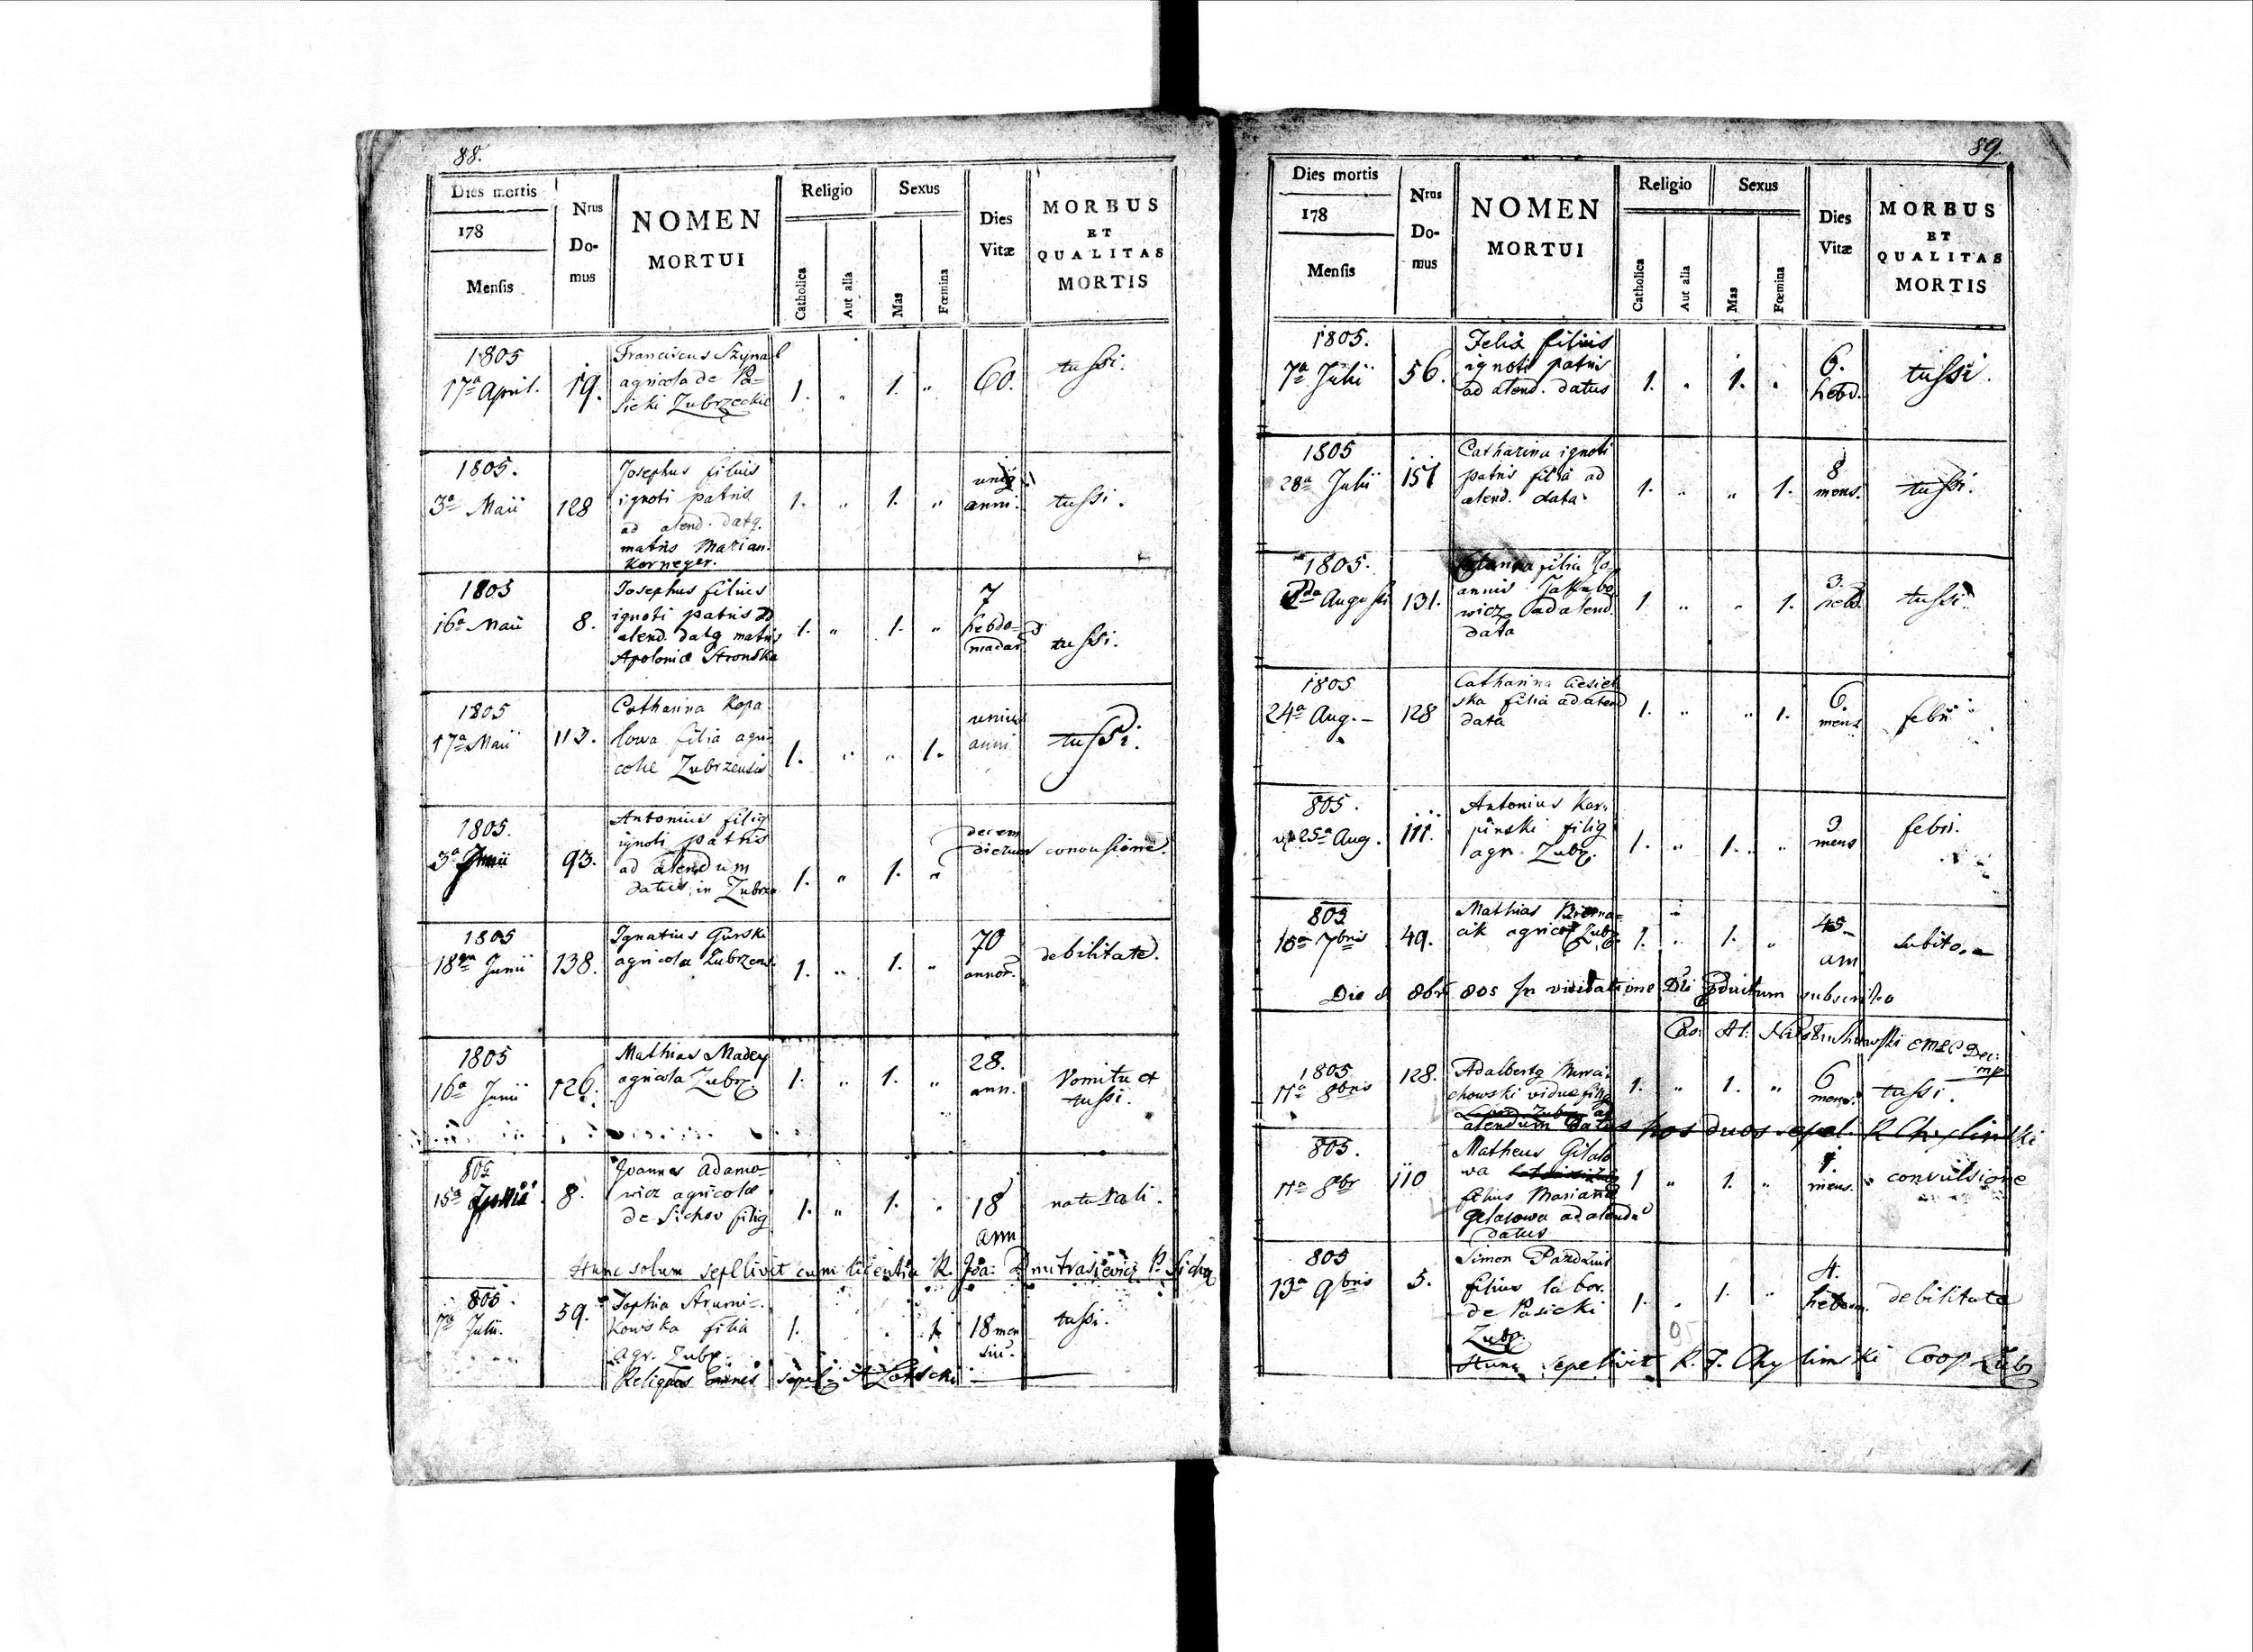 88.
Dies mortis
178
Mensis
Nrus
Do-
mus
NOMEN
MORTUI
Religio
Catholica
Aut alia
Sexus
Mas
Fœmina
Dies
Vitæ
MORBUS
ET
QUALITAS
MORTIS
1805
17a April. 19. 1. " 1. " 60. tussi.
Franciscus Szynal
agricola de Pa-
sieki Zubrzeckie
1805.
3a Maii 128 1. " 1. " anni. tussi.
Josephus filius
ignoti patris
ad alend. datq.
matris Marian.
Korneger.
1805
16a Maii 8. 1. " 1. " 7 hebdo-
madar tussi.
Josephus filius
ignoti patris ad
alend. datq matris
Apoloniæ Stronska
1805
17a Maii 113. 1. " " 1. unius
anni tussi.
Catharina Kopa
lowa filia agri
colæ Zubrzensis
1805.
3a 93. 1. " 1. " decem
dierum convulsione.
Antonius filiq
ignoti patris
ad alendum
datus in Zubrza
1805
18va Junii 138. 1. " 1. " 70
annor. debilitate.
Ignatius Gurski
agricola Zubrzens.
1805
16a Junii 126. 1. " 1. " 28.
ann. Vomitu et
tussi.
Mathias Madey
agricola Zubrz
805
15a 8. 1. " 1. " 18
ann naturali.
Joannes Adamo-
wicz agricolæ
de Sichov filiq
Hunc solum sepelivit cum licentia R. Joa: Dmitrasievicz P. Sicho
805.
7a Julii. 59. 1. 1. 18 men
siu. tussi.
Sophia Strumi-
kowska filia
agr. Zubr.
Reliquos omnes sepel:
89.
Dies mortis
178
Mensis
Nrus
Do-
mus
NOMEN
MORTUI
Religio
Catholica
Aut alia
Sexus
Mas
Fœmina
Dies
Vitæ
MORBUS
ET
QUALITAS
MORTIS
1805.
7a Julii 56. 1. " 1. " 6.
hebd. tussi.
Felix filius
ignoti patris
ad alend. datus
1805
28a Julii 151 1. " " 1. 8
mens. tussi.
Catharina ignoti
patris filia ad
alend. data
1805.
Augusti 131. 1 " " 1. 3.
hebd. tussi.
filia Jo-
annis Jakubo
wicz ad alend.
data
1805
24a Aug. 128 1. " " 1. 6.
mens febri
Catharina Ciesiel
ska filia ad alend
data
805.
25a Aug. 111. 1. " 1. " 3
mens febri.
Antonius Kar-
pinski filiq
agr. Zubrz.
805
16a 7bris 49. 1. " 1. " 45
ann subito.
Mathias Bierna-
cik agricol Zubr
Die 8 8bris 805 In visitatione Dni subscribo
1805
11a 8bris 128. 1. " 1. " 6
mens. tussi.
Adalbertq
chowski viduæ filiq
alendum datus
hos duos sepel. R Chylinski
805.
11a 8br 110 1 " 1. " mens. convulsione
Matheus Gilaso
wa
filius Mariannæ
Gelasowa ad alendu
datus
805
13a 9bris 5. 1. " 1. " 4.
hebdom. debilitate
Simon Pazdzius
filius labor.
de Pasieki
Zubr.
Hunc sepelivit R. J. Chylinski Coop Zubr